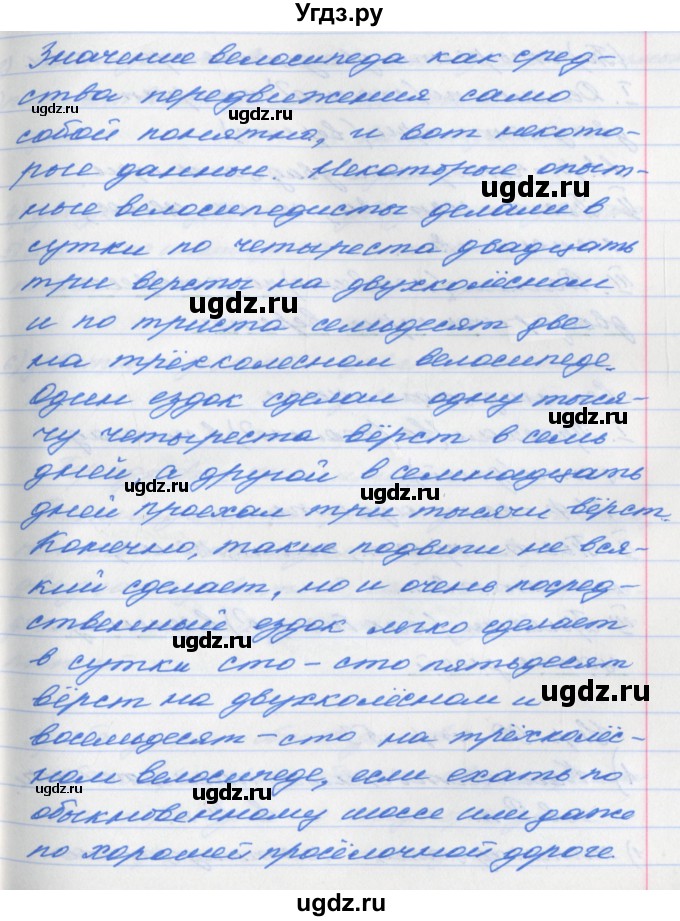 Угдз.ру
Значение велосипеда как сред-
ства передвижения само
собой понятна, и вот некото-
рые данные. Некоторые опыт-
ные велосипедисты делали в
сутки по четыреста двадцать
три версты на двухколёсном
и по триста семьдесят две
на трёхколесном велосипеде.
Один ездок сделал одну тыся-
чу четыреста вёрст в семь
дней а другой в семнадцать
дней проехал три тысячи вёрст.
Конечно, такие подвиги не вся-
кий сделает, но и очень посред-
ственный ездок легко сделает
в сутки сто – сто пятьдесят
вёрст на двухколёсном и
восемьдесят – сто на трёхколёс-
ном велосипеде, если ехать по
обыкновенному шоссе или даже
по хорошей просёлочной дороге.
ugdz.ru
ugdz.ru
ugdz.ru
ugdz.ru
ugdz.ru
ugdz.ru
ugdz.ru
ugdz.ru
ugdz.ru
ugdz.ru
ugdz.ru
ugdz.ru